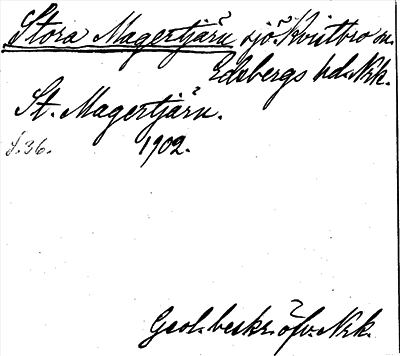 Stora Magertjärn sjö. Kvistbro sn.
Edsbergs hd. Nrk.
St. Magertjärn.
s. 36. 1902.
Geol. beskr. öfv. Nrk.